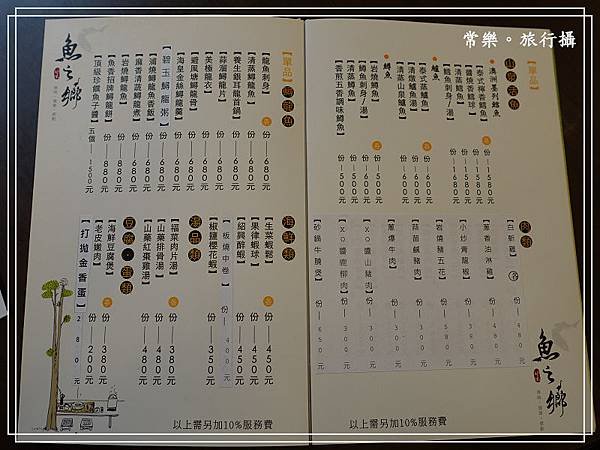 常樂。旅行攝
【單品】
澳洲墨列鱈魚
【泰式檸檬鱈魚】 份 1580元
【醬燒香鱈魚】 份 1580元
【清蒸鱈魚】 份 1580元
【鱈魚刺身/湯】 份 1580元
鱸魚
【泰式蒸鱸魚】 份 600元
【清燉鱸魚湯】 份 600元
【清蒸山泉鱸魚】 份 600元
鱒魚
【岩燒鱒魚】 份 500元
【鱒魚刺身/湯】 份 500元
【清蒸鱒魚】 份 500元
【香煎五香調味鱒魚】 份 500元
肉類
【白斬雞】
【蔥香油淋雞】 份
【小炒青龍椒】 份
【岩燒豬五花】 份
【蒜苗鹹豬肉】 份
【蔥爆牛肉】 份
【XO醬山豬肉】 份
【XO醬鹿柳肉】 份 300元
【砂鍋牛腩煲】 份 650元
魚之鄉
以上需另加10%服務費
【單品】
【龍魚刺身】 份 680元
【清蒸鱘龍魚】 份 680元
【養生銀耳龍首鍋】 份 680元
【蒜溜鱘龍片】 份 680元
【美極龍衣】 份 680元
【避風塘鱘龍骨】 份 680元
【海皇金絲鱘龍羹】 份 680元
【碧玉鱘龍粥】
【浦燒鱘龍魚香飯】 份 880元
【麻香清蔬鱘龍煮】 份
【岩燒鱘龍魚】 份 880元
【魚香招牌鱘龍餅】 份 880元
【頂級珍饌魚子醬】 五個 1500元
魚之鄉
海鮮類
【生菜蝦鬆】 份 450元
【果律蝦球】 份 450元
【紹興醉蝦】 份 450元
【板燒中卷】 份 400元
【椒鹽櫻花蝦】 份 350元
湯品類
【福菜肉片湯】 份 380元
【山藥排骨湯】 份 480元
【山藥紅棗雞湯】 份 480元
豆腐•蛋類
【海鮮豆腐煲】 份 380元
【老皮嫩肉】 份 200元
【打拋金香蛋】 280元
以上需另加10%服務費